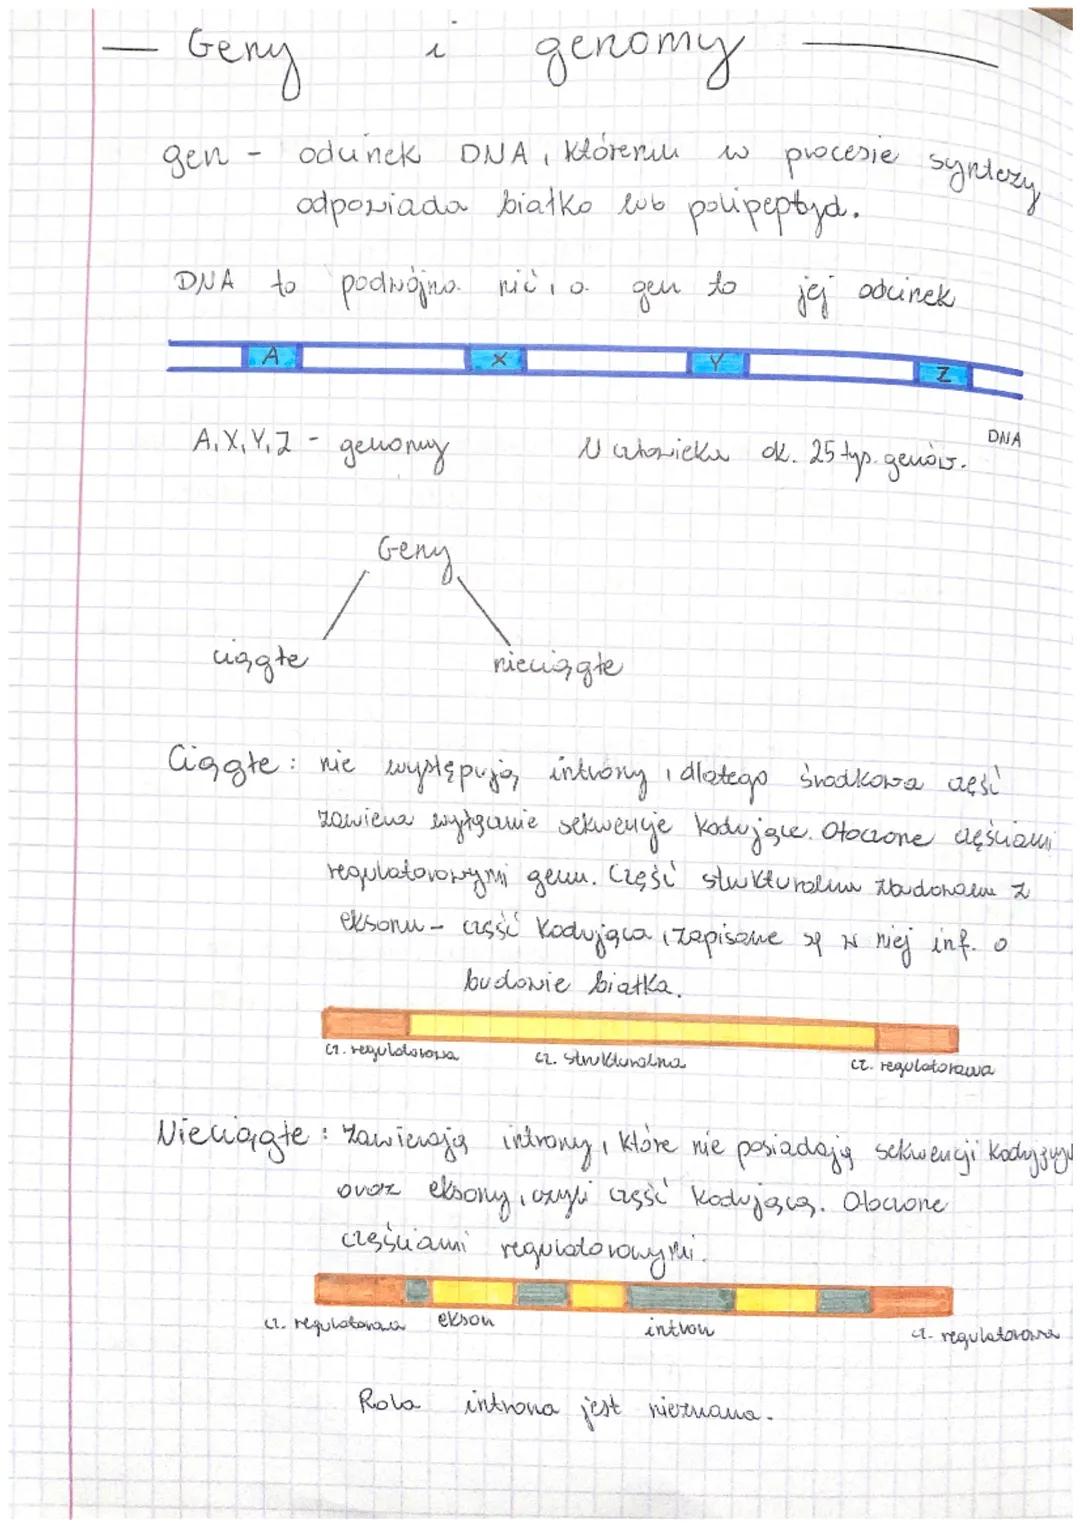 Geny i genomy
gen - odcinek DNA, któremu w procesie syntezy
odpowiada białko lub polipeptyd.
DNA to podwójna nić, a gen to jej odcinek
A X Y Z
DNA
A, X, Y, Z - genomy U człowieka ok. 25 tys. genów.
Geny
ciągłe nieciągłe
Ciągłe: nie występują introny, dlatego środkowa część
zawiera wyłącznie sekwencje kodujące. Otoczone częściami
regulatorowymi genu. Część strukturalna zbudowana z
eksonu - część kodująca, zapisane są w niej inf. o
budowie białka.
cz. regulatorowa cz. strukturalna cz. regulatorowa
Nieciągłe: zawierają introny, które nie posiadają sekwencji
oraz eksony, czyli część kodującą. Otoczone
częściami regulatorowymi.
cz. regulatorowa ekson intron cz. regulatorowa
Rola introna jest nieznana.